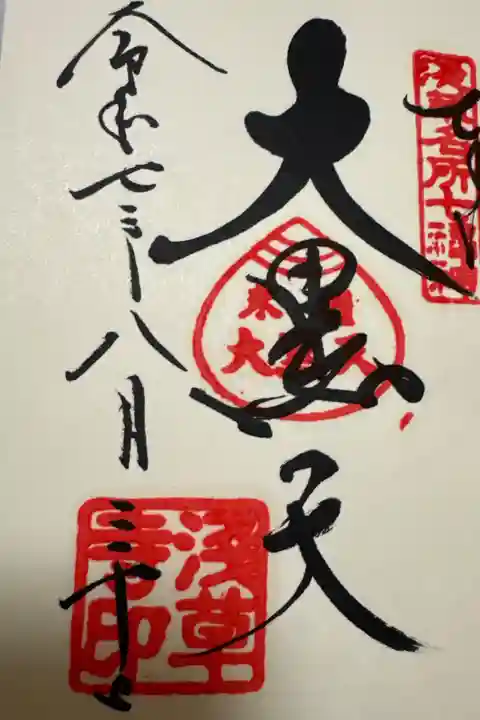 浅草名所七福神
大黒天
令和七年八月三十日
浅草
寺印